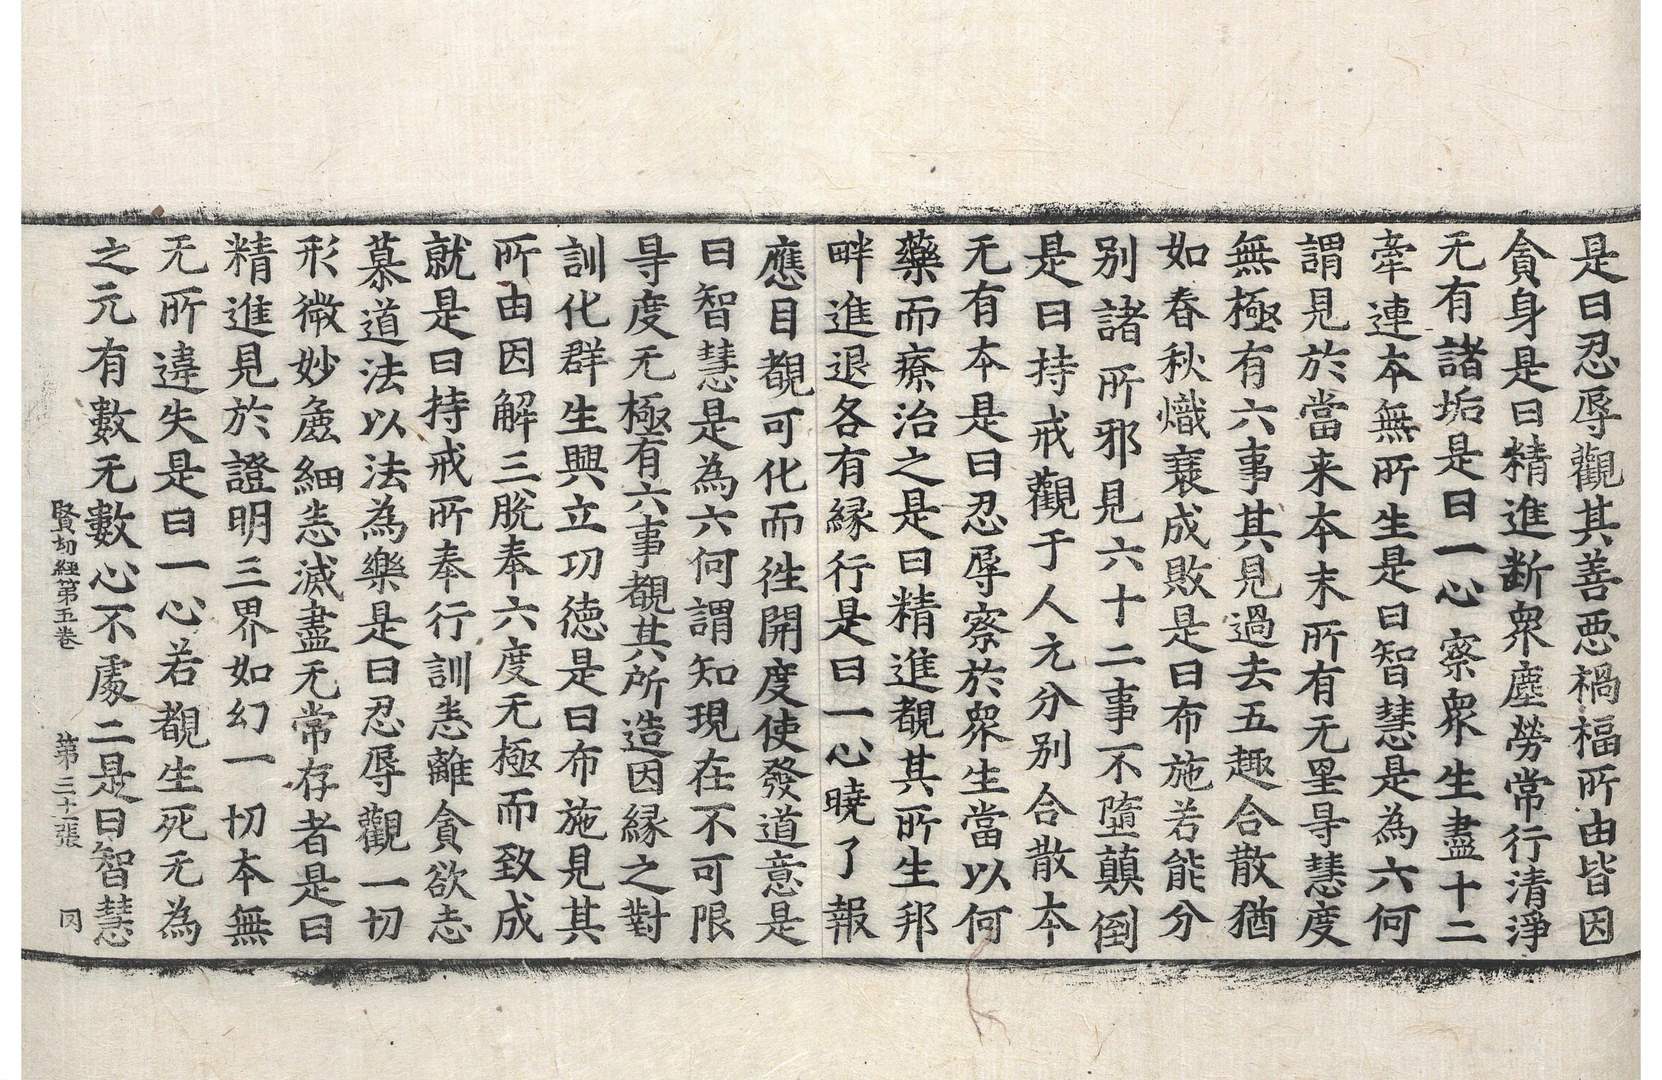 是曰忍辱觀其善惡禍福所由皆因
貪身是曰精進斷衆塵勞常行清淨
无有諸垢是曰一心察衆生盡十二
牽連本無所生是曰智慧是為六何
謂見於當来本末所有无罣㝵慧度
無極有六事其見過去五趣合散猶
如春秋熾衰成敗是曰布施若能分
别諸所邪見六十二事不墮顛倒
是曰持戒觀于人元分别合散本
无有本是曰忍辱察於衆生當以何
藥而療治之是曰精進覩其所生邦
畔進退各有縁行是曰一心曉了報
應目覩可化而徃開度使發道意是
曰智慧是為六何謂知現在不可限
㝵度无極有六事覩其所造因縁之對
訓化群生興立功德是曰布施見其
所由因解三脫奉六度无極而致成
就是曰持戒所奉行訓恚離貪欲志
慕道法以法為樂是曰忍辱觀一切
形微妙麁細恚滅盡无常存者是曰
精進見於證明三界如幻一切本無
无所違失是曰一心若覩生死无為
之元有數无數心不處二是曰智慧
賢劫經第五卷 第三十二張 図